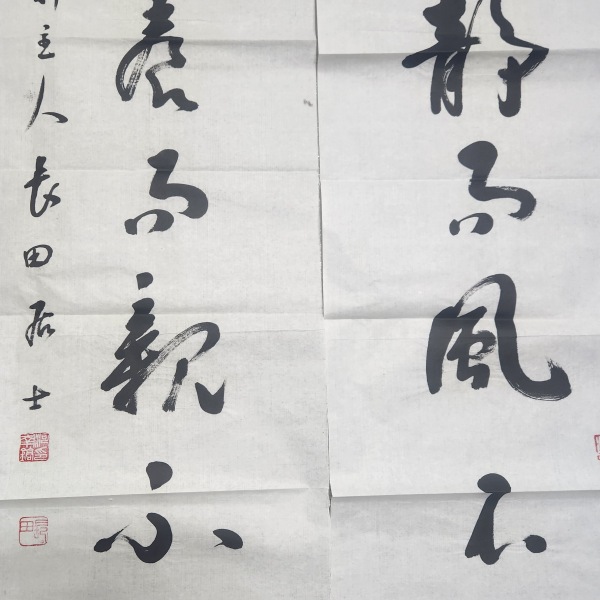 静而風不
養而親不
主人長田居士